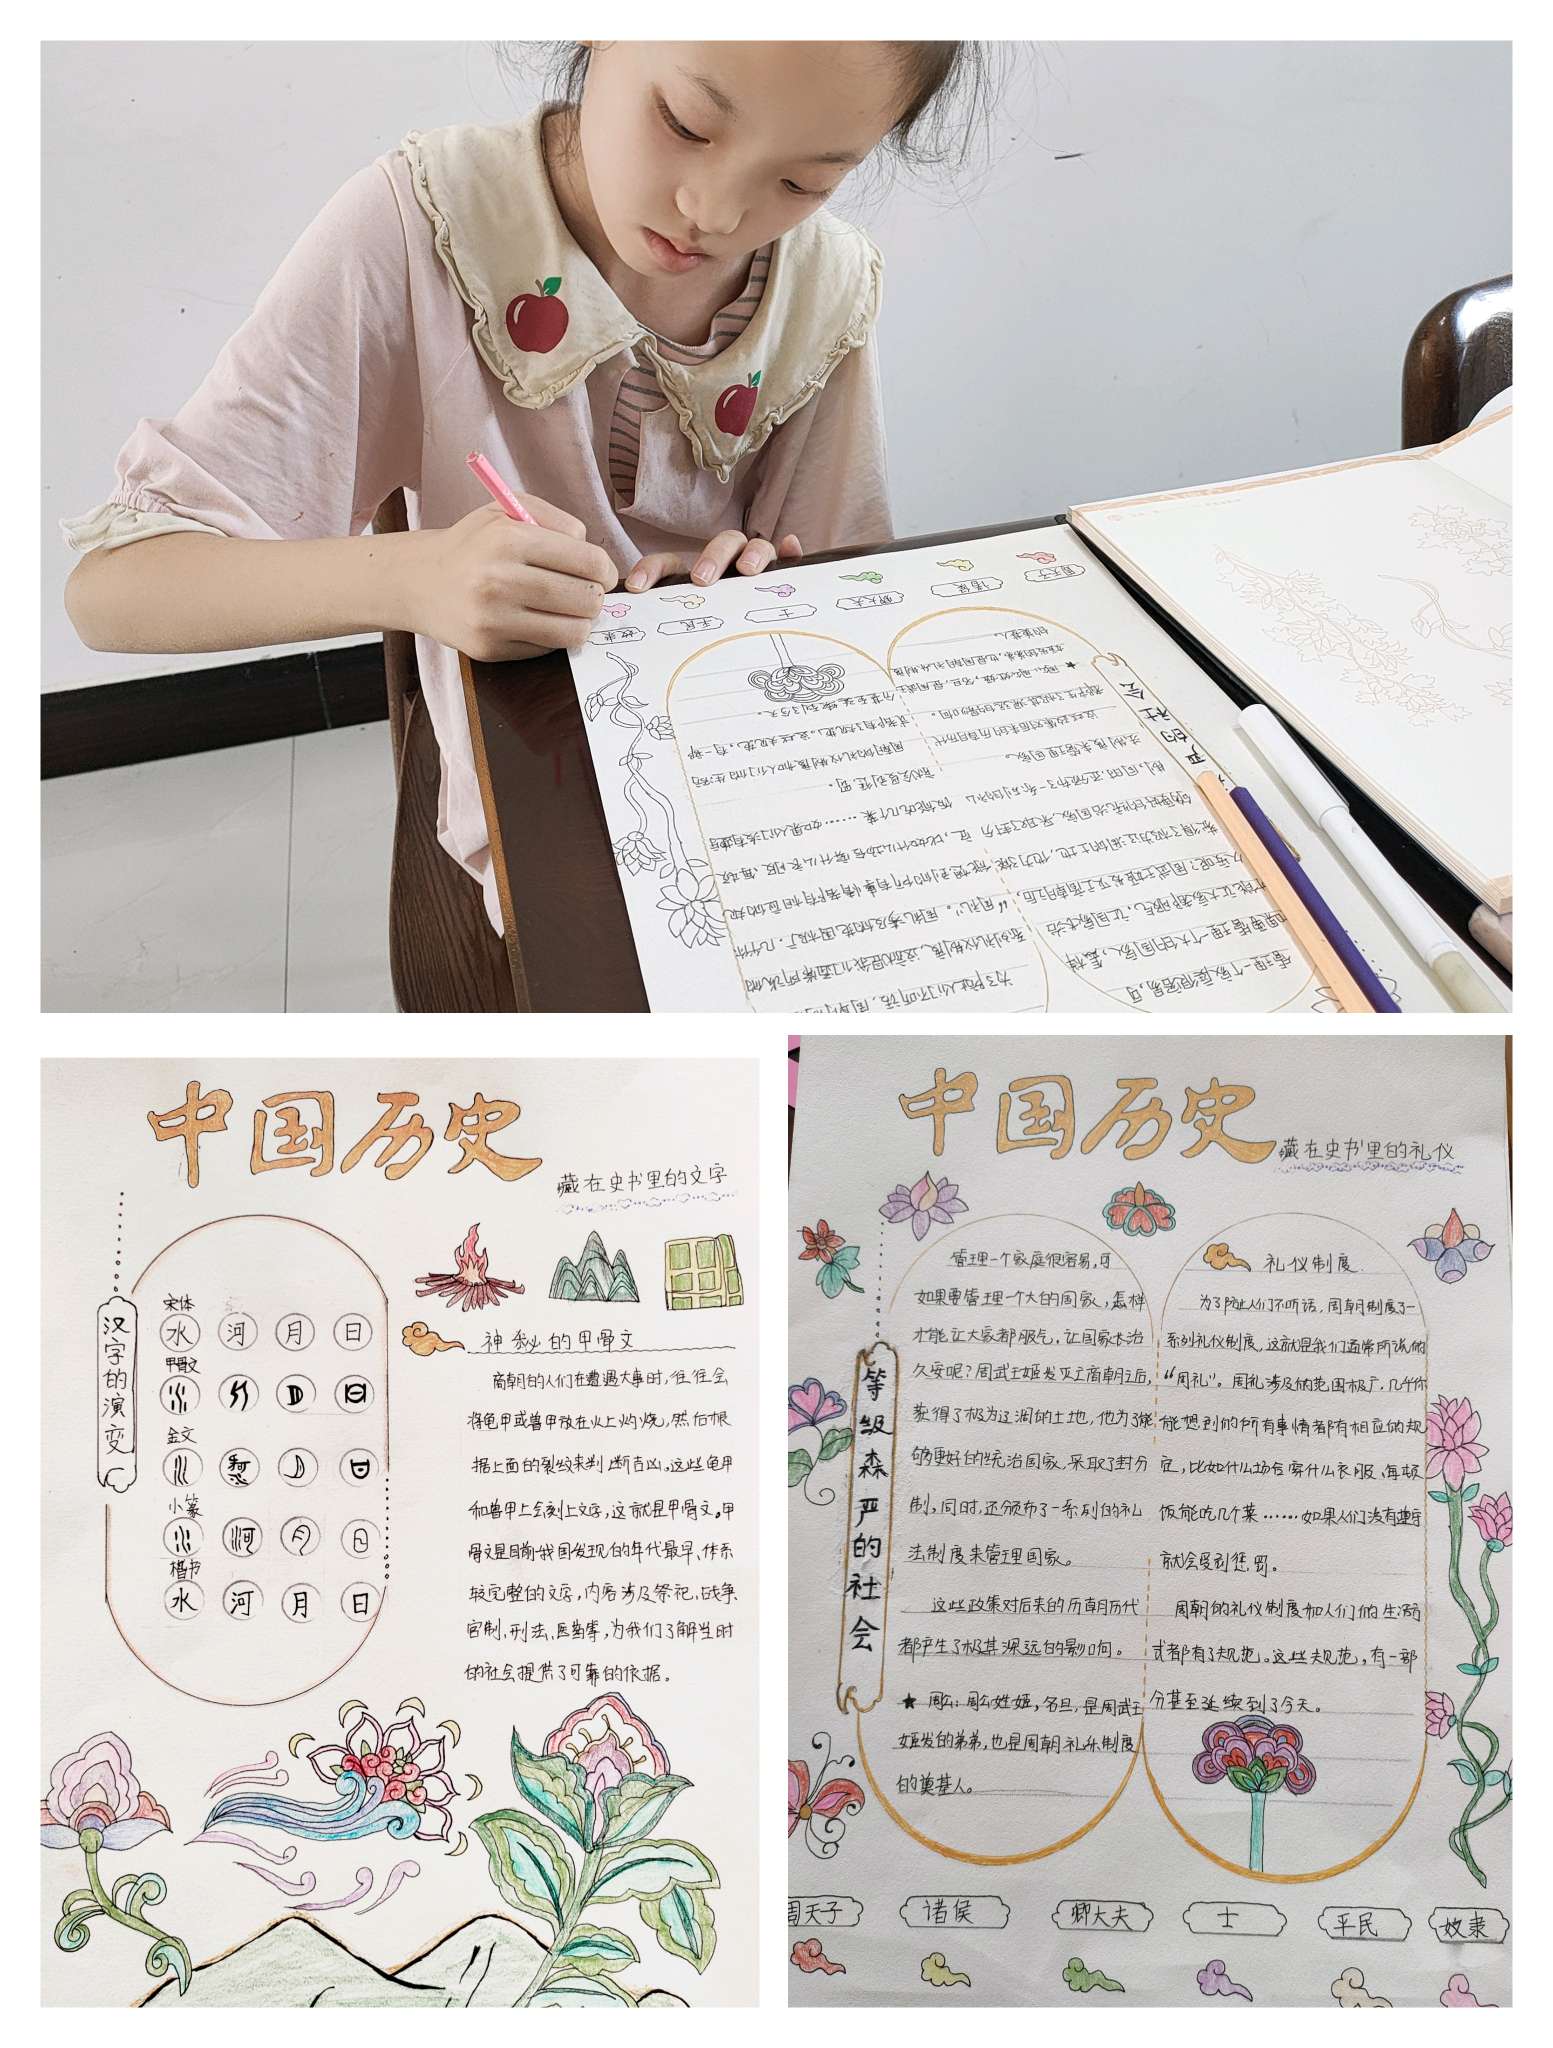 中国历史
藏在史书里的文字
汉字的演变
宋体
水 河 月 日
甲骨文
金文
小篆
楷书
水 河 月 日
神秘的甲骨文
商朝的人们在遭遇大事时,往往会
将龟甲或兽甲放在火上灼烧,然后根
据上面的裂纹来判断吉凶。这些龟甲
和兽甲上会刻上文字,这就是甲骨文。甲
骨文是目前我国发现的年代最早、体系
较完整的文字,内容涉及祭祀、战争、
官制、刑法、医药等,为我们了解当时
的社会提供了可靠的依据。
中国历史
藏在史书里的礼仪
等级森严的社会
管理一个家庭很容易,可
如果要管理一个大的国家,怎样
才能让大家都服气,让国家长治
久安呢?周武王姬发灭亡商朝之后,
获得了极为辽阔的土地,他为了能
够更好的统治国家,采取了封分
制,同时,还颁布了一系列的礼
法制度来管理国家。
这些政策对后来的历朝历代
都产生了极其深远的影响。
★ 周公:周公姓姬,名旦,是周武王
姬发的弟弟,也是周朝礼乐制度
的奠基人。
礼仪制度
为了防止人们不听话,周朝制度了一
系列礼仪制度,这就是我们通常所说的
“周礼”。周礼涉及的范围极广,几乎你
能想到的所有事情都有相应的规
定,比如什么场合穿什么衣服、每顿
饭能吃几个菜……如果人们没有遵守
就会受到惩罚。
周朝的礼仪制度和人们的生活方
式都有了规范。这些规范,有一部
分甚至延续到了今天。
周天子 诸侯 卿大夫 士 平民 奴隶